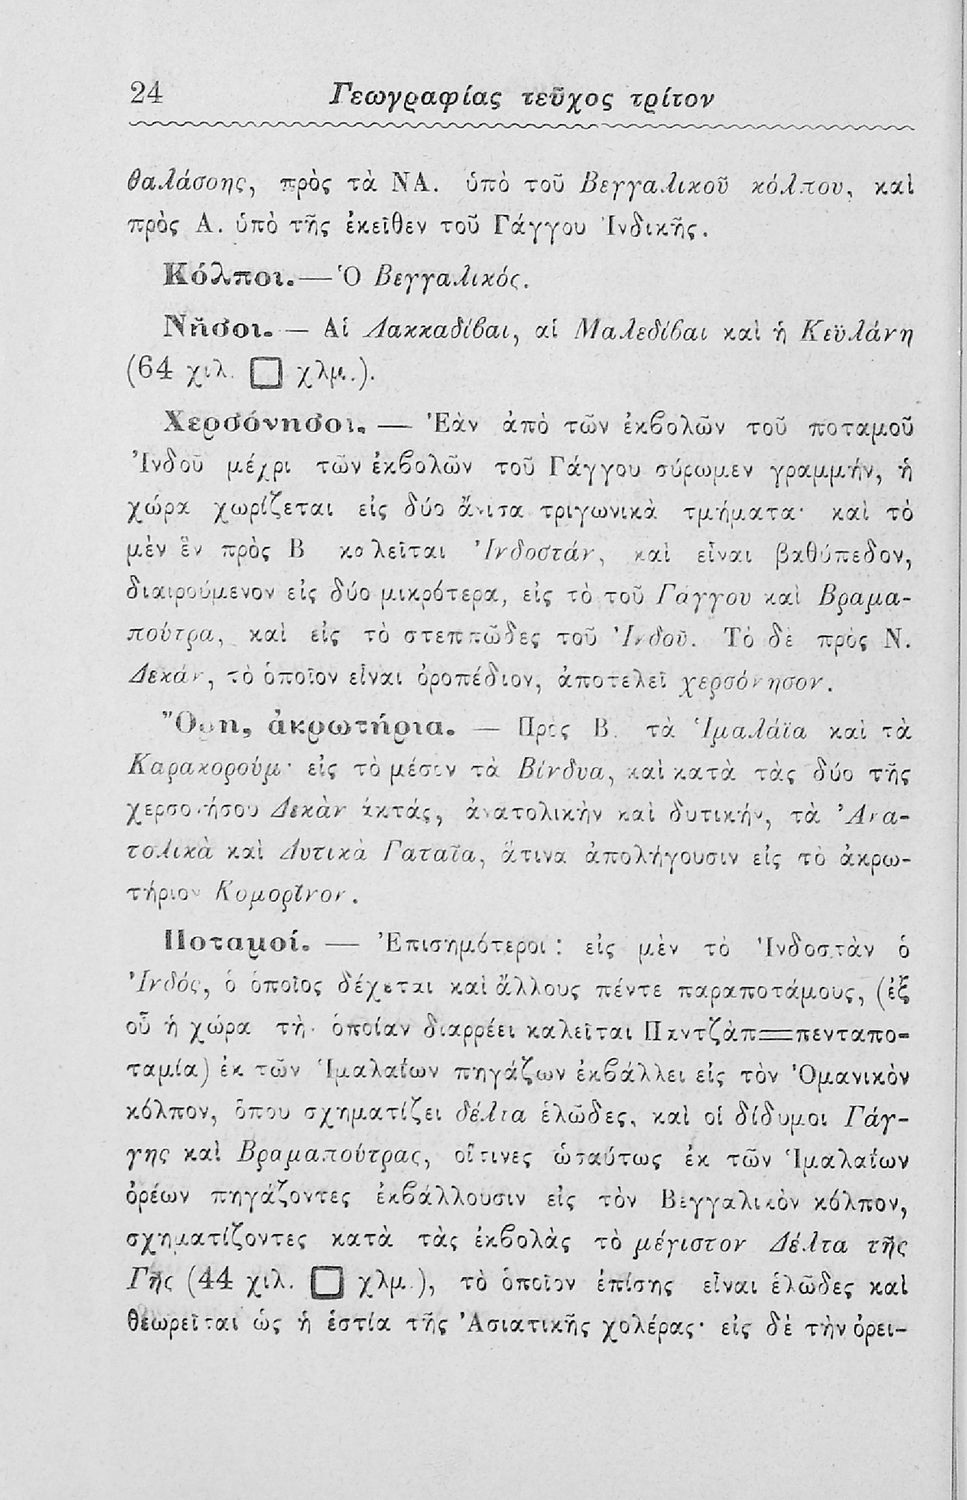 24 Γεωγραφίας τεῦχος τρίτον
θαλάσσης, πρὸς τὰ ΝΑ. ὑπὸ τοῦ Βεγγαλικοῦ κόλπου, καὶ
πρὸς Α. ὑπὸ τῆς ἐκεῖθεν τοῦ Γάγγου Ἰνδικῆς.
Κόλποι.— Ὁ Βεγγαλικός.
Νῆσοι. — Αἱ Λακκαδίβαι, αἱ Μαλεδίβαι καὶ ἡ Κεϋλάνη
(64 χιλ. □ χλμ.).
Χερσόνησοι. — Ἐὰν ἀπὸ τῶν ἐκβολῶν τοῦ ποταμοῦ
Ἰνδοῦ μέχρι τῶν ἐκβολῶν τοῦ Γάγγου σύρωμεν γραμμήν, ἡ
χώρα χωρίζεται εἰς δύο ἄνισα τριγωνικὰ τμήματα· καὶ τὸ
μὲν ἓν πρὸς Β καλεῖται Ἰνδοστάν, καὶ εἶναι βαθύπεδον,
διαιρούμενον εἰς δύο μικρότερα, εἰς τὸ τοῦ Γάγγου καὶ Βραμα-
πούτρα, καὶ εἰς τὸ στεππῶδες τοῦ Ἰνδοῦ. Τὸ δὲ πρὸς Ν.
Δεκάν, τὸ ὁποῖον εἶναι ὀροπέδιον, ἀποτελεῖ χερσόνησον.
Ὄρη, ἀκρωτήρια. — Πρὸς Β. τὰ Ἱμαλάϊα καὶ τὰ
Καρακορούμ· εἰς τὸ μέσον τὰ Βίνδυα, καὶ κατὰ τὰς δύο τῆς
χερσονήσου Δεκὰν ἀκτάς, ἀνατολικὴν καὶ δυτικήν, τὰ Ἀνα-
τολικὰ καὶ Δυτικὰ Γαταῖα, ἅτινα ἀπολήγουσιν εἰς τὸ ἀκρω-
τήριον Κομορῖνον.
Ποταμοί. — Ἐπισημότεροι : εἰς μὲν τὸ Ἰνδοστὰν ὁ
Ἰνδός, ὁ ὁποῖος δέχεται καὶ ἄλλους πέντε παραποτάμους, (ἐξ
οὗ ἡ χώρα τὴν ὁποίαν διαρρέει καλεῖται Παντζὰπ=πενταπο-
ταμία) ἐκ τῶν Ἱμαλαΐων πηγάζων ἐκβάλλει εἰς τὸν Ὀμανικὸν
κόλπον, ὅπου σχηματίζει δέλτα ἑλῶδες, καὶ οἱ δίδυμοι Γάγ-
γης καὶ Βραμαπούτρας, οἵτινες ὡσαύτως ἐκ τῶν Ἱμαλαΐων
ὀρέων πηγάζοντες ἐκβάλλουσιν εἰς τὸν Βεγγαλικὸν κόλπον,
σχηματίζοντες κατὰ τὰς ἐκβολὰς τὸ μέγιστον Δέλτα τῆς
Γῆς (44 χιλ. □ χλμ.), τὸ ὁποῖον ἐπίσης εἶναι ἑλῶδες καὶ
θεωρεῖται ὡς ἡ ἑστία τῆς Ἀσιατικῆς χολέρας· εἰς δὲ τὴν ὀρει-